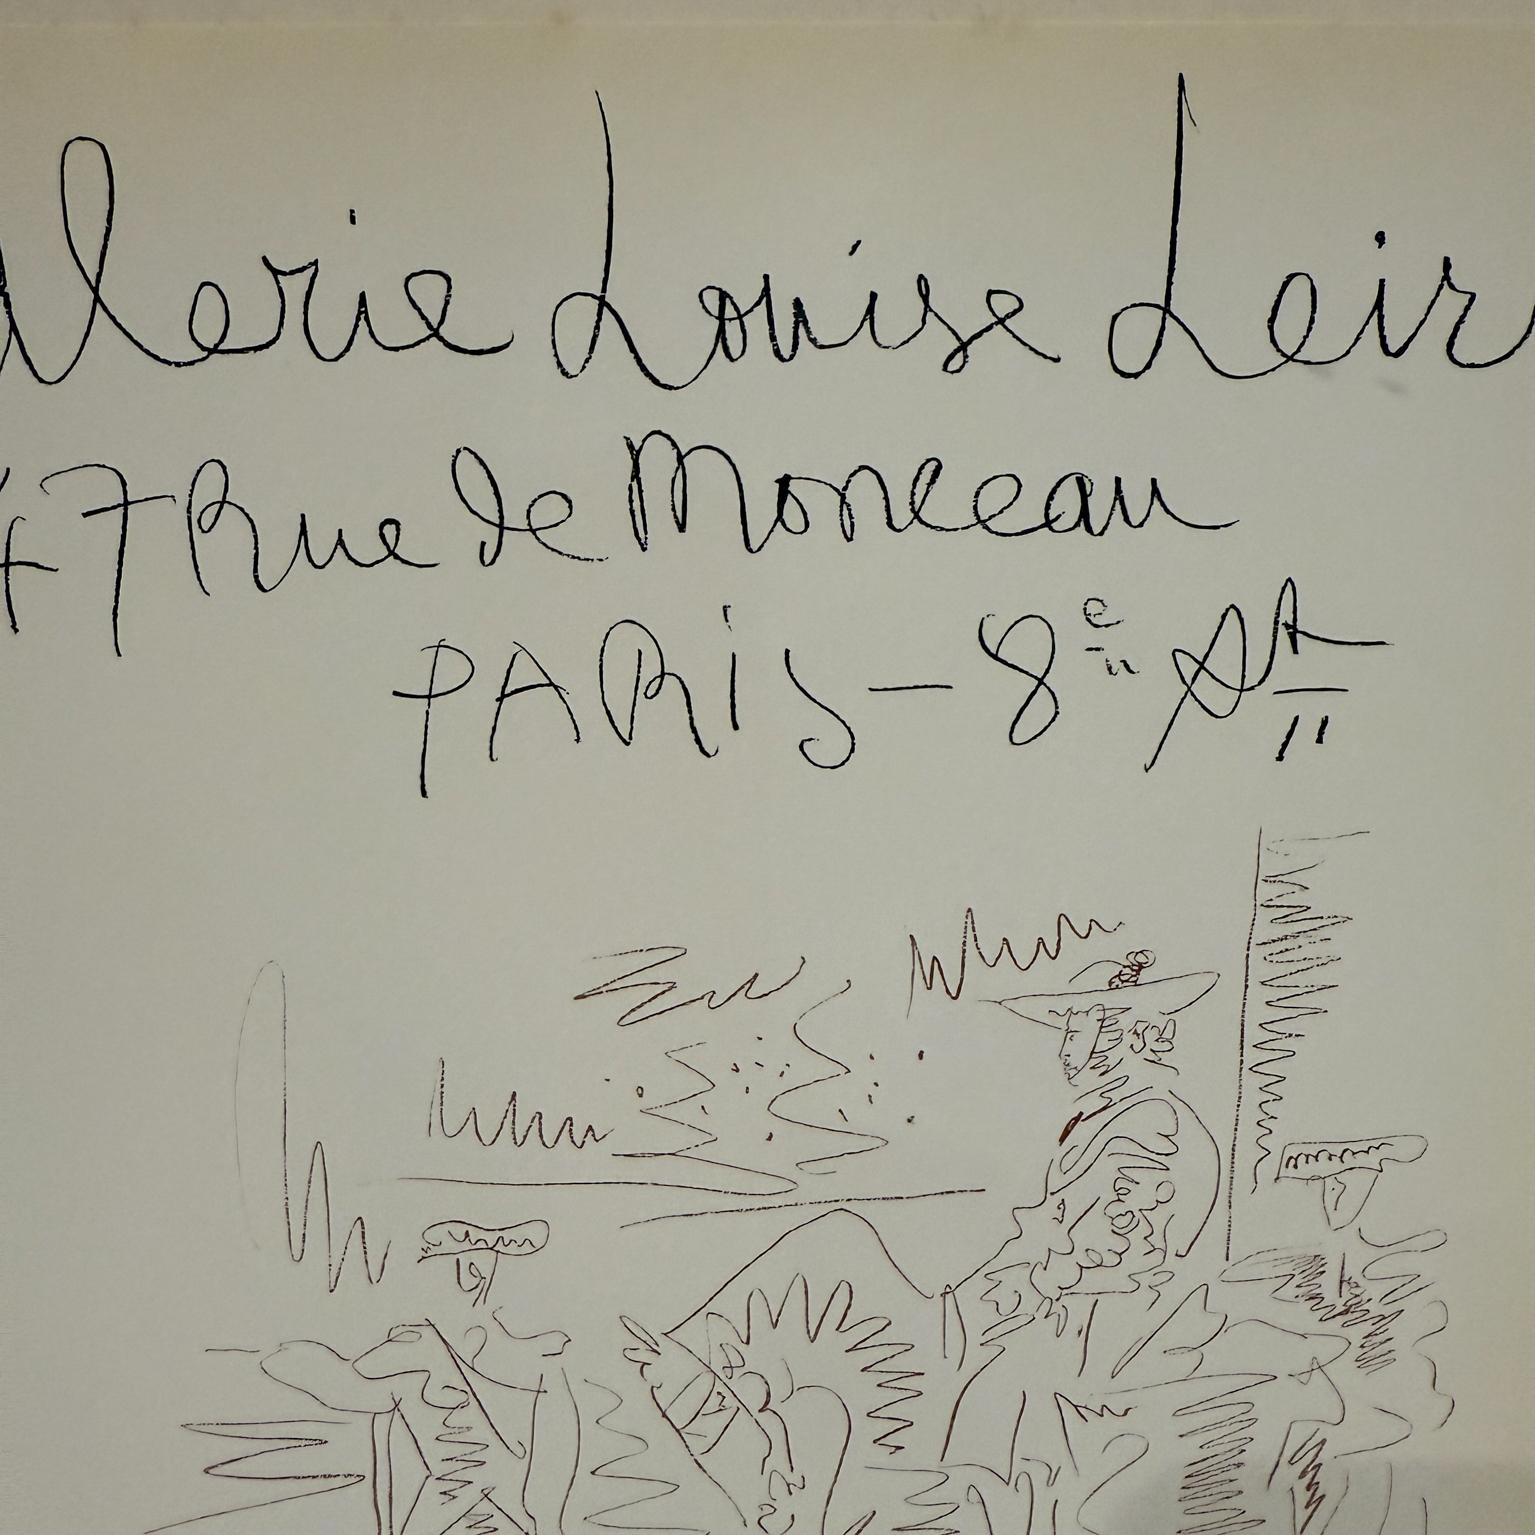 Marie Louise Leir
47 Rue de Monceau
PARIS – 8e At